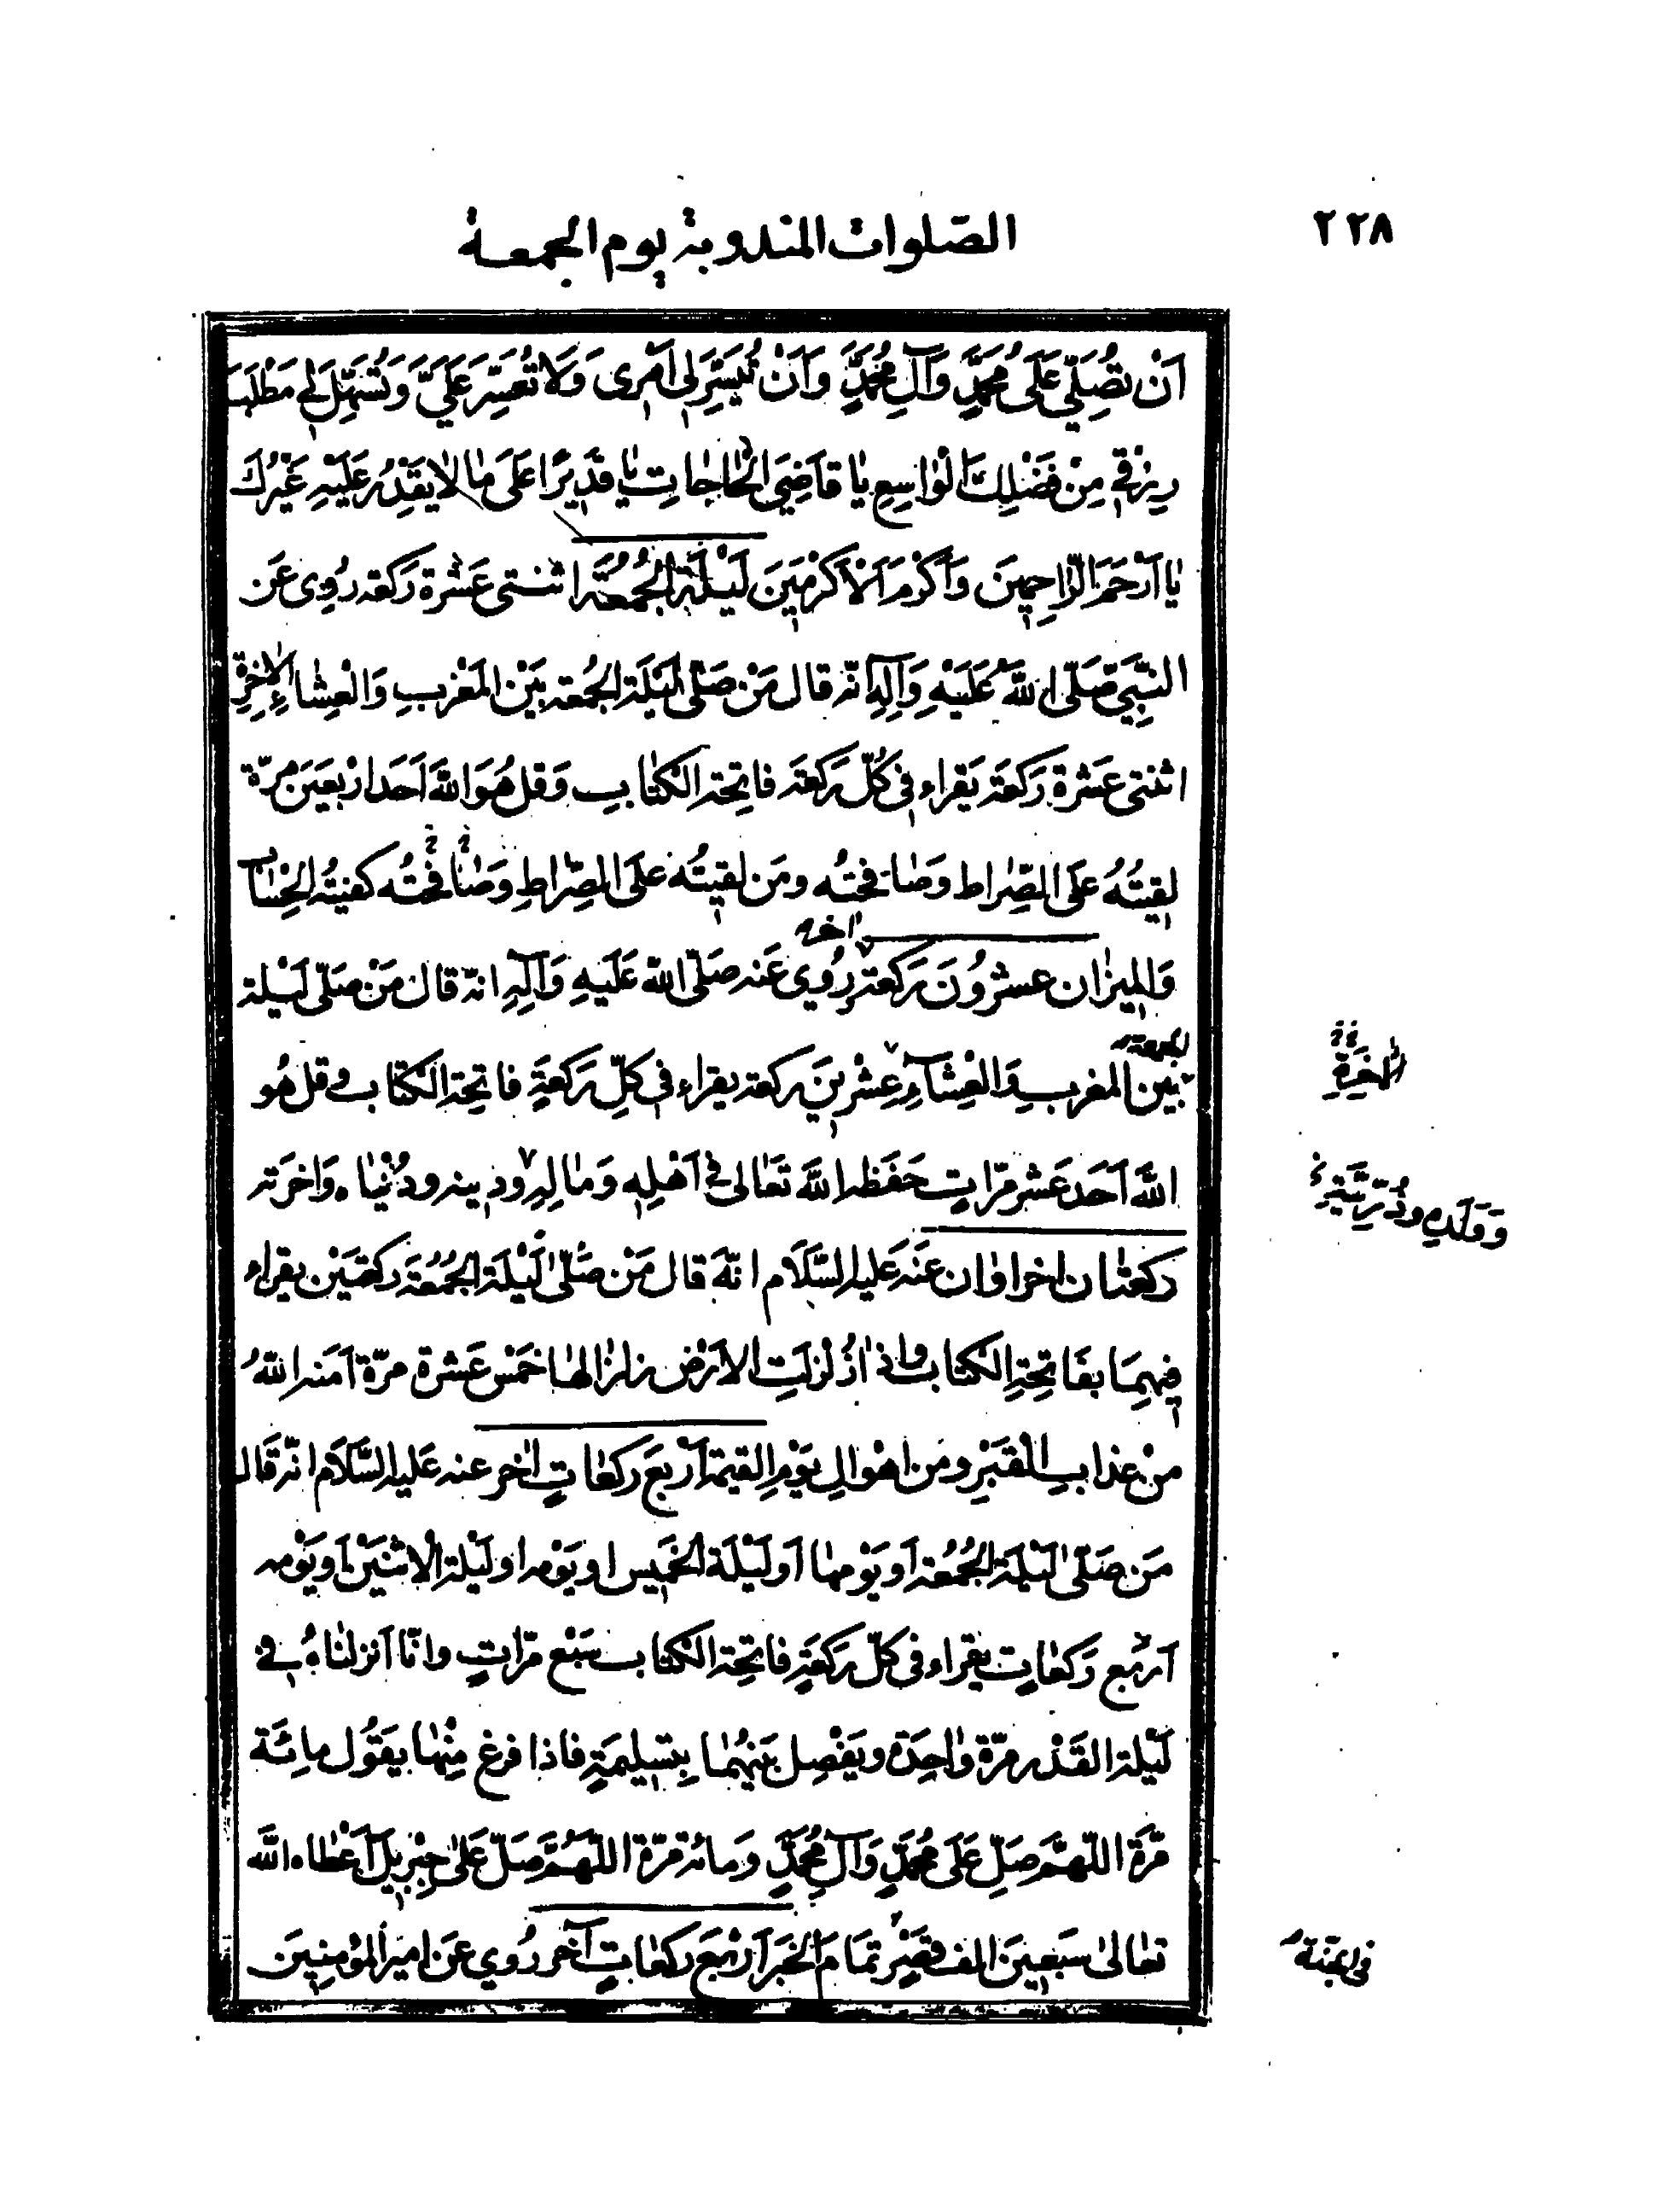 ٢٢٨
الصّلوات المندوبة يوم الجمعة
اَنْ تُصَلِّيَ عَلَى مُحَمَّدٍ وَآلِ مُحَمَّدٍ وَاَنْ تُيَسِّرَ لِي اَمْرِي وَلَا تُعَسِّرَ عَلَيَّ وَتُسَهِّلَ لِي مَطْلَبَ
رِزْقِي مِنْ فَضْلِكَ الْوَاسِعِ يَا قَاضِيَ الْحَاجَاتِ يَا قَدِيرًا عَلَى مَا لَا يَقْدِرُ عَلَيْهِ غَيْرُكَ
يَا اَرْحَمَ الرَّاحِمِينَ وَاَكْرَمَ الْاَكْرَمِينَ لَيْلَةَ الْجُمُعَةِ اثنتى عَشْرَة رَكعة رُوِى عَن
النَّبِيِّ صَلَّى اللَّهُ عَلَيْهِ وَآلِهِ انّه قال مَنْ صَلَّى لَيْلَةَ الجُمعة بَيْنَ المَغْرِبِ وَالْعِشَاءِ الْآخِرَةِ
اثنتى عَشْرَة رَكعَة يَقراء فِي كُلّ رَكعَة فاتِحَة الكتابِ وَقل هُوَ اللَّهُ اَحَد اَرْبَعينَ مرّة
لقِيتُهُ عَلَى الصِّرَاط وَصَافحتُه ومَن لقيتُه عَلَى الصِّرَاطِ وَصَافحْتُه كفيتُه الحِسَابَ
وَالمِيزَان عشرُونَ رَكعة اخر رُوِي عَنه صَلَّى اللَّه عَلَيهِ وَآلِهِ انّه قال مَنْ صَلّى لَيْلة
الجمعة بَيْن المغربِ وَالْعِشَآءِ عِشْرِينَ ركعة يقراء فِي كلِّ رَكعَةٍ فاتِحة الكتاب وقل هُو
اللَّهُ اَحَد عَشر مرّاتٍ حَفَظه اللَّهَ تَعَالى فِي اَهْلِه وَمَالِهِ ودِينه ودُنْيَاه وَاخرَته
رَكعتان اخراوان عَنْه عَليه السَّلَام انّه قال مَنْ صَلّى لَيْلَةَ الجُمُعَة رَكعَتَيْن يقراء
فِيهِمَا بفَاتِحَةِ الكتابِ وَاِذا زُلْزِلَتِ الاَرْض زلزالها خَمْس عَشْرة مرّة آمَنه اللَّهُ
منْ عَذابِ الْقَبْرِ ومن اهْوالِ يَوْمِ القيمة اَرْبَع رَكعاتٍ اُخر عنه عَليه السَّلَام انّه قَالَ
مَن صَلّى لَيْلَةَ الجُمُعة اَو يَوْمها اَو لَيْلَة الخَمِيس او يَوْمه او لَيْلة الاثنَيْن اَو يَوْمه
اَرْبع رَكعاتٍ يقراء فى كلّ رَكعَةٍ فاتِحَة الكتاب سَبْع مَرّاتٍ وانّا اَنزلناهُ فِي
لَيْلة القَدْر مرّة وَاحِدَة ويَفْصِل بَيْنَهُمَا بِتسلِيمَةٍ فاذا فرغ مِنْهَا يقُول مائة
مَرَّة اللّهُمَّ صَلِّ عَلَى مُحَمَّدٍ وَآلِ مُحَمَّدٍ وَمائة مَرّة اللّهُمَّ صَلِّ عَلَى جِبْرِيلَ اَعْطَاه اللَّه
تعالى سَبعينَ الف قصْرٍ تمَام الخبَر اَرْبَع رَكعاتٍ اُخر رُوي عَن امير المؤمِنِينَ
الاخِرَةِ
وَوَلَدِهِ وذُرّيَّتِهِ
فى الجنّة